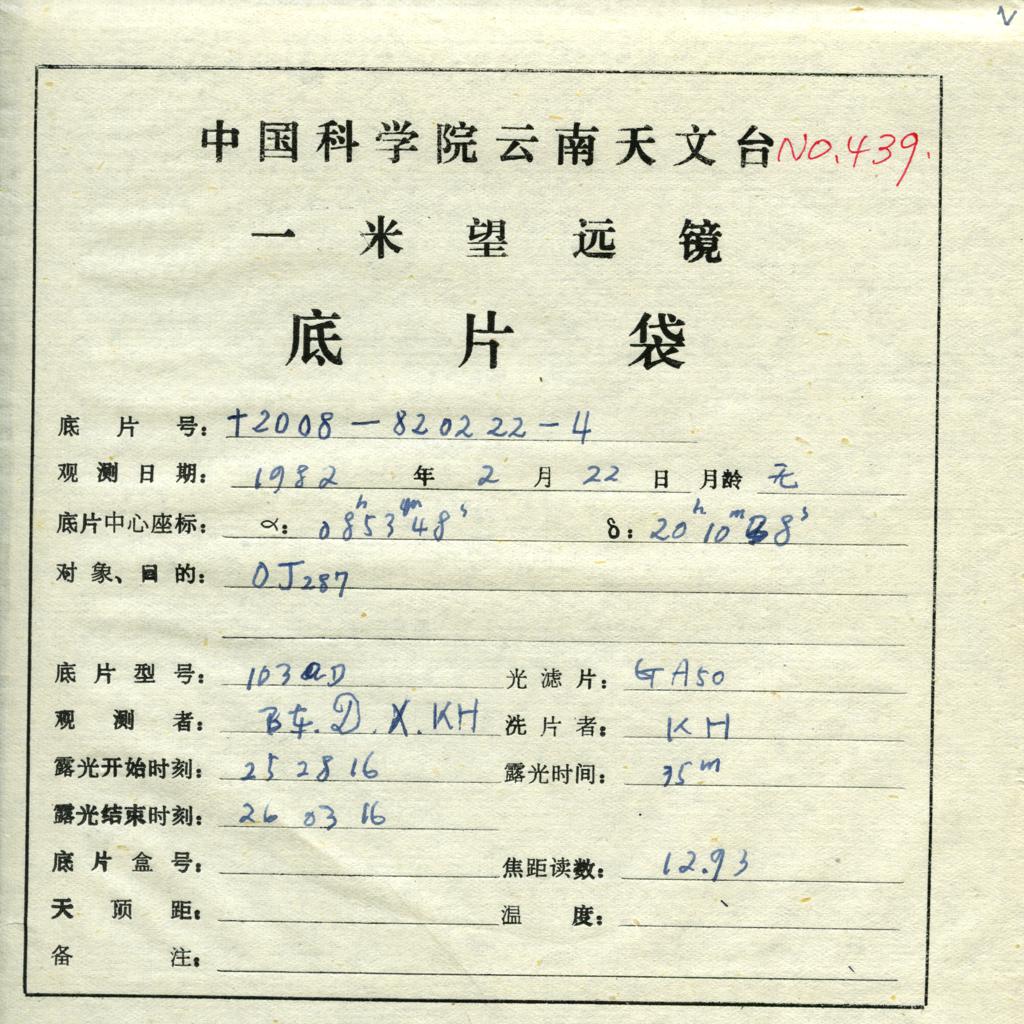 中国科学院云南天文台 NO.439.
一米望远镜
底片袋
底片号: +2008-820222-4
观测日期: 1982 年 2 月 22 日 月龄 无
底片中心座标: α: 08h53m48s δ: 20h10m 8s
对象、目的: OJ287
底片型号: 103aD 光滤片: GA50
观测者: 车.D.X.KH 洗片者: KH
露光开始时刻: 25 28 16 露光时间: 35m
露光结束时刻: 26 03 16
底片盒号: 焦距读数: 12.93
天顶距: 温度:
备注: